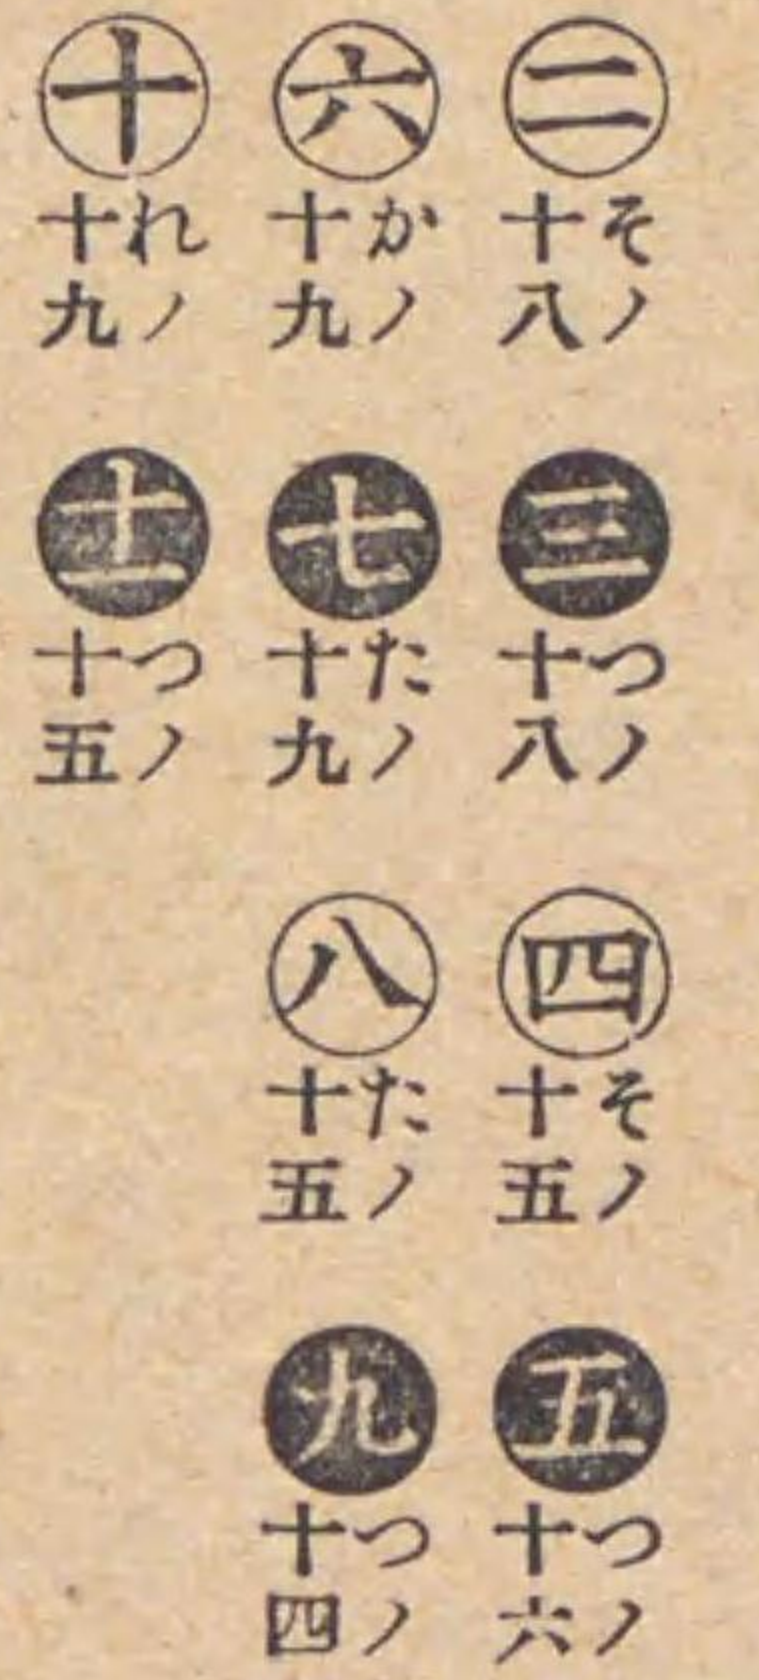 二
そノ十八
三
つノ十八
四
そノ十五
五
つノ十六
六
かノ十九
七
たノ十九
八
たノ十五
九
つノ十四
十
れノ十九
十一
つノ十五